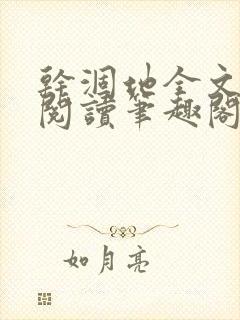 幹涸地全文
閱讀筆趣閣
如月亮